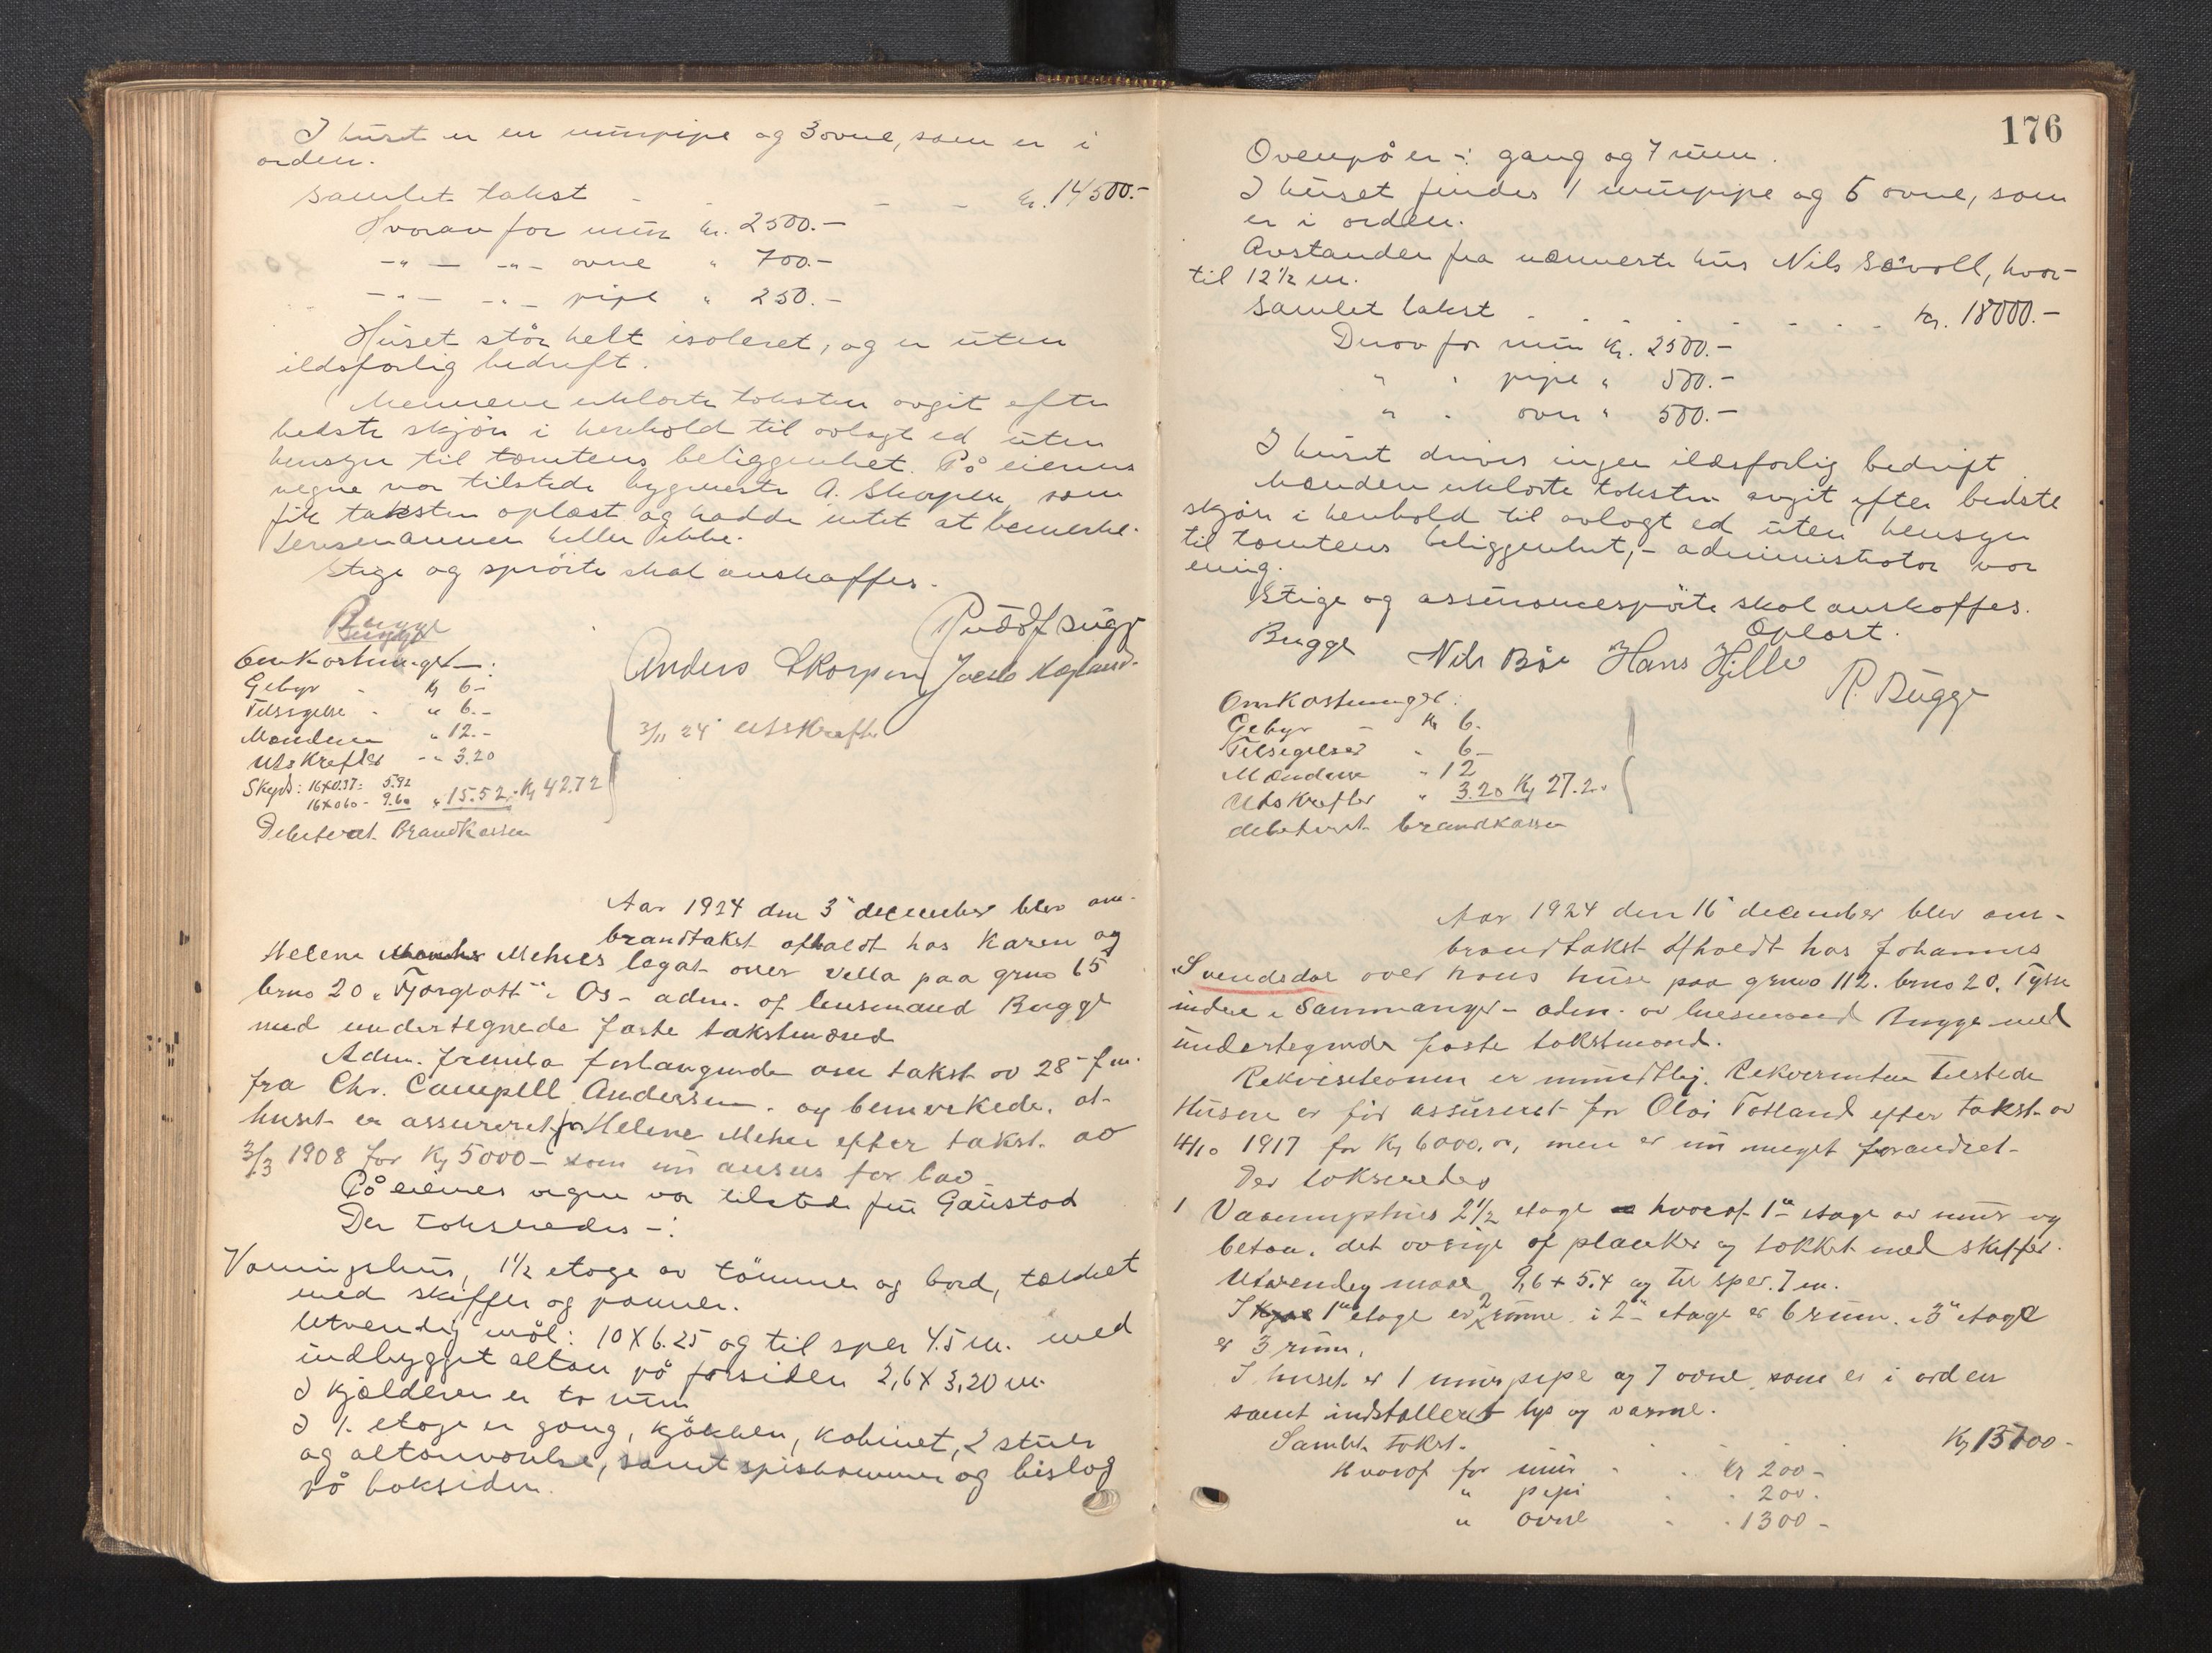 I huset er en murpipe og 3 ovne, som er i
orden.
Samlet takst - - - - kr. 14500.-
Hvorav for mur kr. 2500.-
-"- -"- ovne " 700.-
-"- -"- pipe " 250.-
Huset står helt isoleret, og er uten
ildsfarlig bedrift.
Mennene erklærte taksten avgit efter
bedste skjön i henhold til avlagt ed uten
hensyn til tomtens beliggenhet. På eierens
vegne var tilstede bygmester A. Skorpen, som
fik taksten oplæst og hadde intet at bemerke.
Lensmannen heller ikke.
Stige og spröite skal anskaffes.
Bugge
Rudolf Bugge
Anders Skorpen Jacob
Omkostninger:
Gebyr - Kr 6-
Tilsigelse - " 6.-
Mændene " 12.-
Utskrefter - " 3.20
Skyds: 16x0.37= 5.92
16x060- 9.60 " 15.52 - Kr 42.72
3/11 24 Utskreft
Debiteret Brandkassen
Aar 1924 den 3' december blev om-
brandtakst afholdt hos Karen og
Helene Mehus legat over villa paa grno 65
brno 20 "Fjorglött" i Os - adm. af lensmand Bugge
med undertegnede faste takstmænd
Adm. fremla forlangende om takst av 28' f.m.
fra Chr. Campell Andersen. og bemerkede, at
huset er assureret for Helene Mehus efter takst av
3/3 1908 for Kr 5000- som nu anses for lav
På eiernes vegne var tilstede fru Gaustad
Der taksertes -:
Våningshus, 1½ etage av tömmer og bord, tækket
med skiffer og panner.
Utvendig mål: 10 x 6.25 og til sper 4.5 m. med
indbygget altan på forsiden 2,6 x 3,20 m.
I kjælderen er to rum
I 1. etage er gang, kjökken, kabinet, 2 stuer
og altanværelse, samt spiskammer og bislag
på baksiden.
176
Ovenpå er -: gang og 7 rum.
I huset findes 1 murpipe og 5 ovne, som
er i orden.
Avstanden fra nærmeste hus Nils Sævoll, hvor-
til 12½ m.
Samlet takst - - - - - - - kr. 18000.-
Derav for mur kr. 2500.-
" " pipe " 500.-
" " ovne " 500.-
I huset drives ingen ildsfarlig bedrift
Mænden erklærte taksten avgit efter bedste
skjön i henhold til avlagt ed uten hensyn
til tomtens beliggenhet, - administrator var
enig.
Stige og assurancespröite skal anskaffes.
Oplæst.
Bugge Nils Böe Hans Hjelle
R. Bugge
Omkostninger:
Gebyr - Kr 6.
Tilsigelser " 6-
Mændene " 12
Utskrefter " 3.20 Kr 27.20
debiteret brandkassen
Aar 1924 den 16' december blev om-
brandtakst afholdt hos Johannes
Svendsdal over hans huse paa grno 112. brno 20. Tysse
indre i Sammanger - adm. av lensmand Bugge med
undertegnede faste takstmænd.
Rekvisitionen er mundtlig. Rekvirenten tilstede
Husene er för assureret for Olai Totland efter takst av
4/10 1917 for Kr 6000.00, men er nu meget forandret-
Der takseredes
1 Vaaningshus 2½ etage hvoraf 1ste etage av mur og
beton. det øvrige af planker og tækket med skiffer.
Utvendig maal 9,6 + 5.4 og til sper. 7 m.
I 1ste etage er 2 rumme. i 2 etage er 6 rum. i 3' etage
er 3 rum.
I huset er 1 murpipe og 7 ovne, som er i orden
samt indstalleret lys og varme.
Samlet takst. - - - Kr 15000-
Hvoraf for mur - - Kr 200-
" pipe - - 200.
" ovne - - 1300-